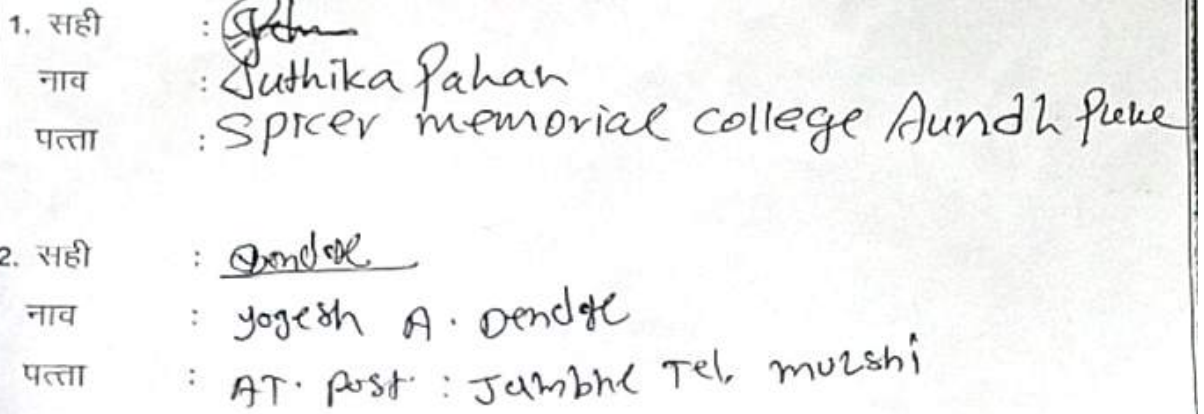 1. सही :
नाव : Juthika Pahan
पत्ता : Spicer memorial college Aundh Pune
2. सही :
नाव : yogesh A. Dendge
पत्ता : AT. post : Jambhe Tel. mulshi